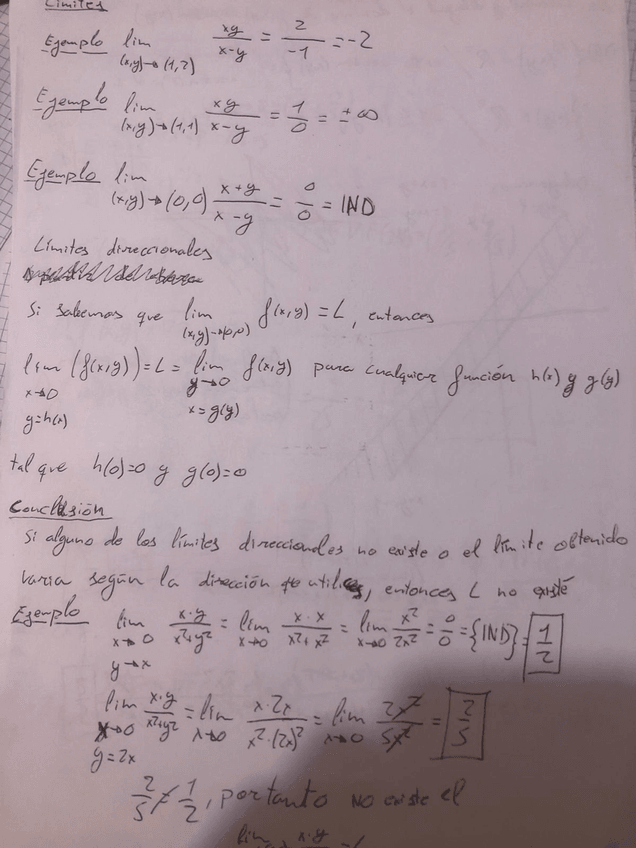 Límites
Ejemplo lim (x,y)→(1,2) xy/x-y = 2/-1 = -2
Ejemplo lim (x,y)→(1,1) xy/x-y = 1/0 = ±∞
Ejemplo lim (x,y)→(0,0) x+y/x-y = 0/0 = IND
Límites direccionales
Si sabemos que lim (x,y)→(0,0) f(x,y) = L, entonces
lim x→0 y=h(x) (f(x,y)) = L = lim y→0 x=g(y) f(x,y) para cualquier función h(x) y g(y)
tal que h(0)=0 y g(0)=0
Conclusión
Si alguno de los límites direccionales no existe o el límite obtenido
varia según la dirección utilices, entonces L no existe
Ejemplo lim x→0 y→x x·y/x²+y² = lim x→0 x·x/x²+x² = lim x→0 x²/2x² = 0/0 = {IND} = 1/2
lim x→0 y=2x x·y/x²+y² = lim x→0 x·2x/x²·(2x)² = lim x→0 2x²/5x² = 2/5
2/5 ≠ 1/2, por tanto NO existe el
lim x·y